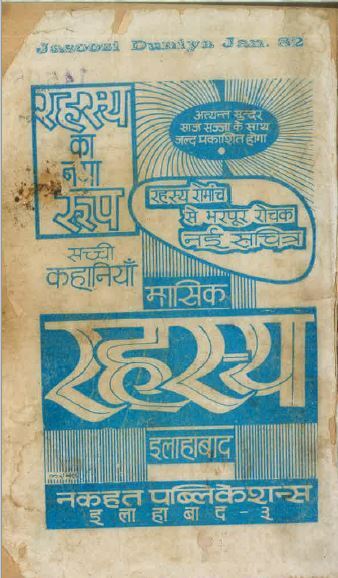 Jasoosi Duniya Jan. 82
रहस्य
का
नया
रूप
अत्यन्त सुन्दर
साज सज्जा के साथ
जल्द प्रकाशित होगा
रहस्य रोमांच
से भरपूर रोचक
नई सचित्र
सच्ची
कहानियाँ
मासिक
रहस्य
इलाहाबाद
नकहत पब्लिकेशन्स
इलाहाबाद - ३